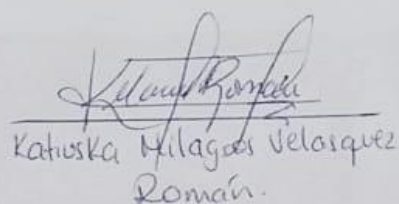 Katiuska Milagros Velasquez
Román.